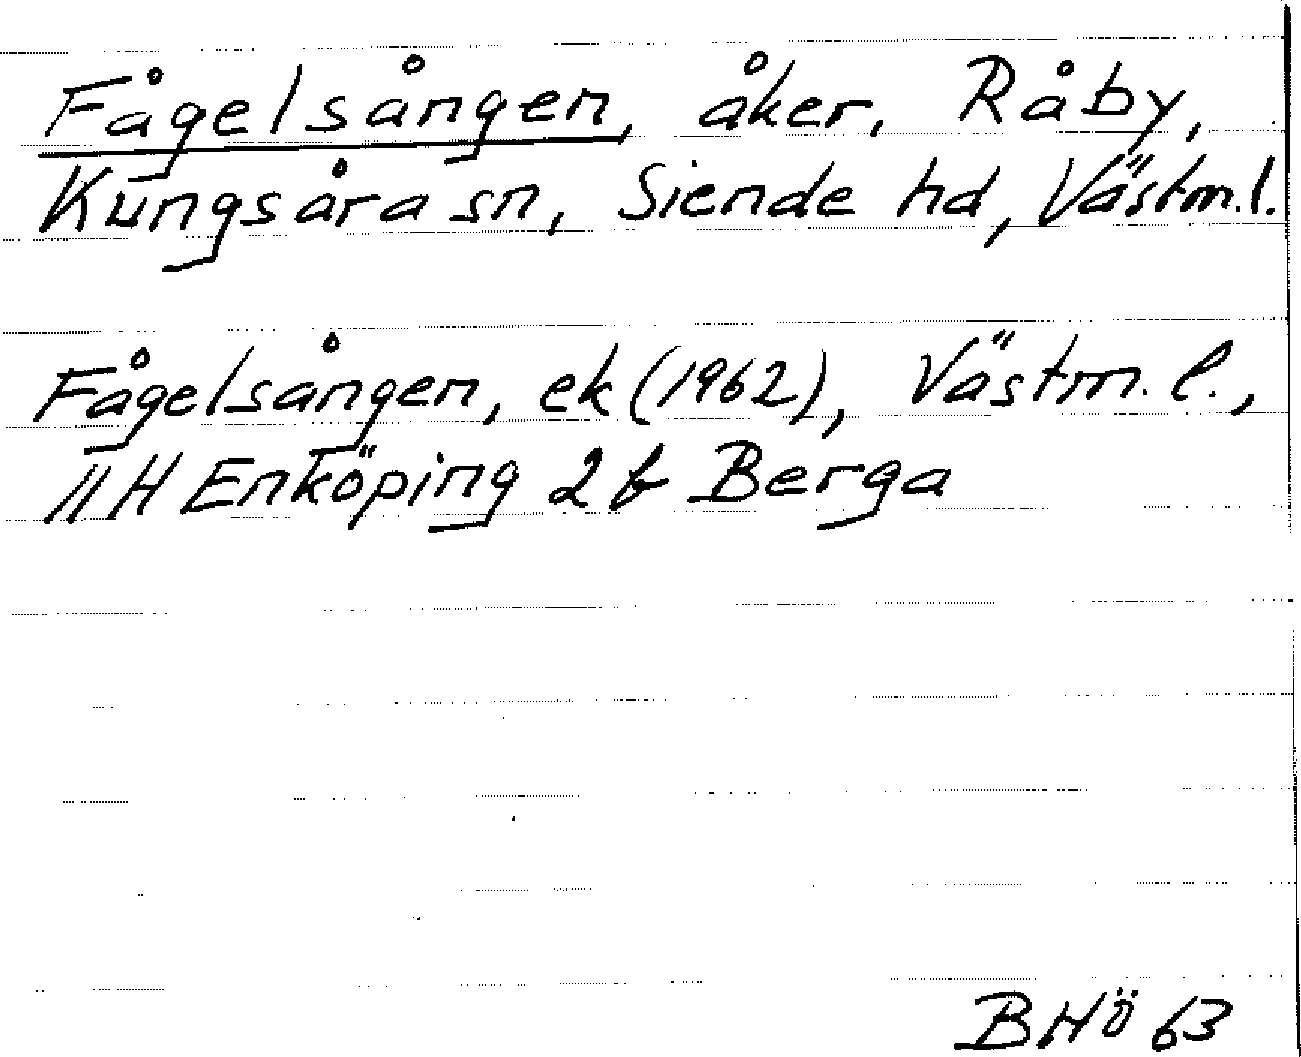 Fågelsången, åker, Råby,
Kungsåra sn, Siende hd, Västm.l.
Fågelsången, ek (1962), Västm.l.,
11H Enköping 2b Berga
BHÖ 63